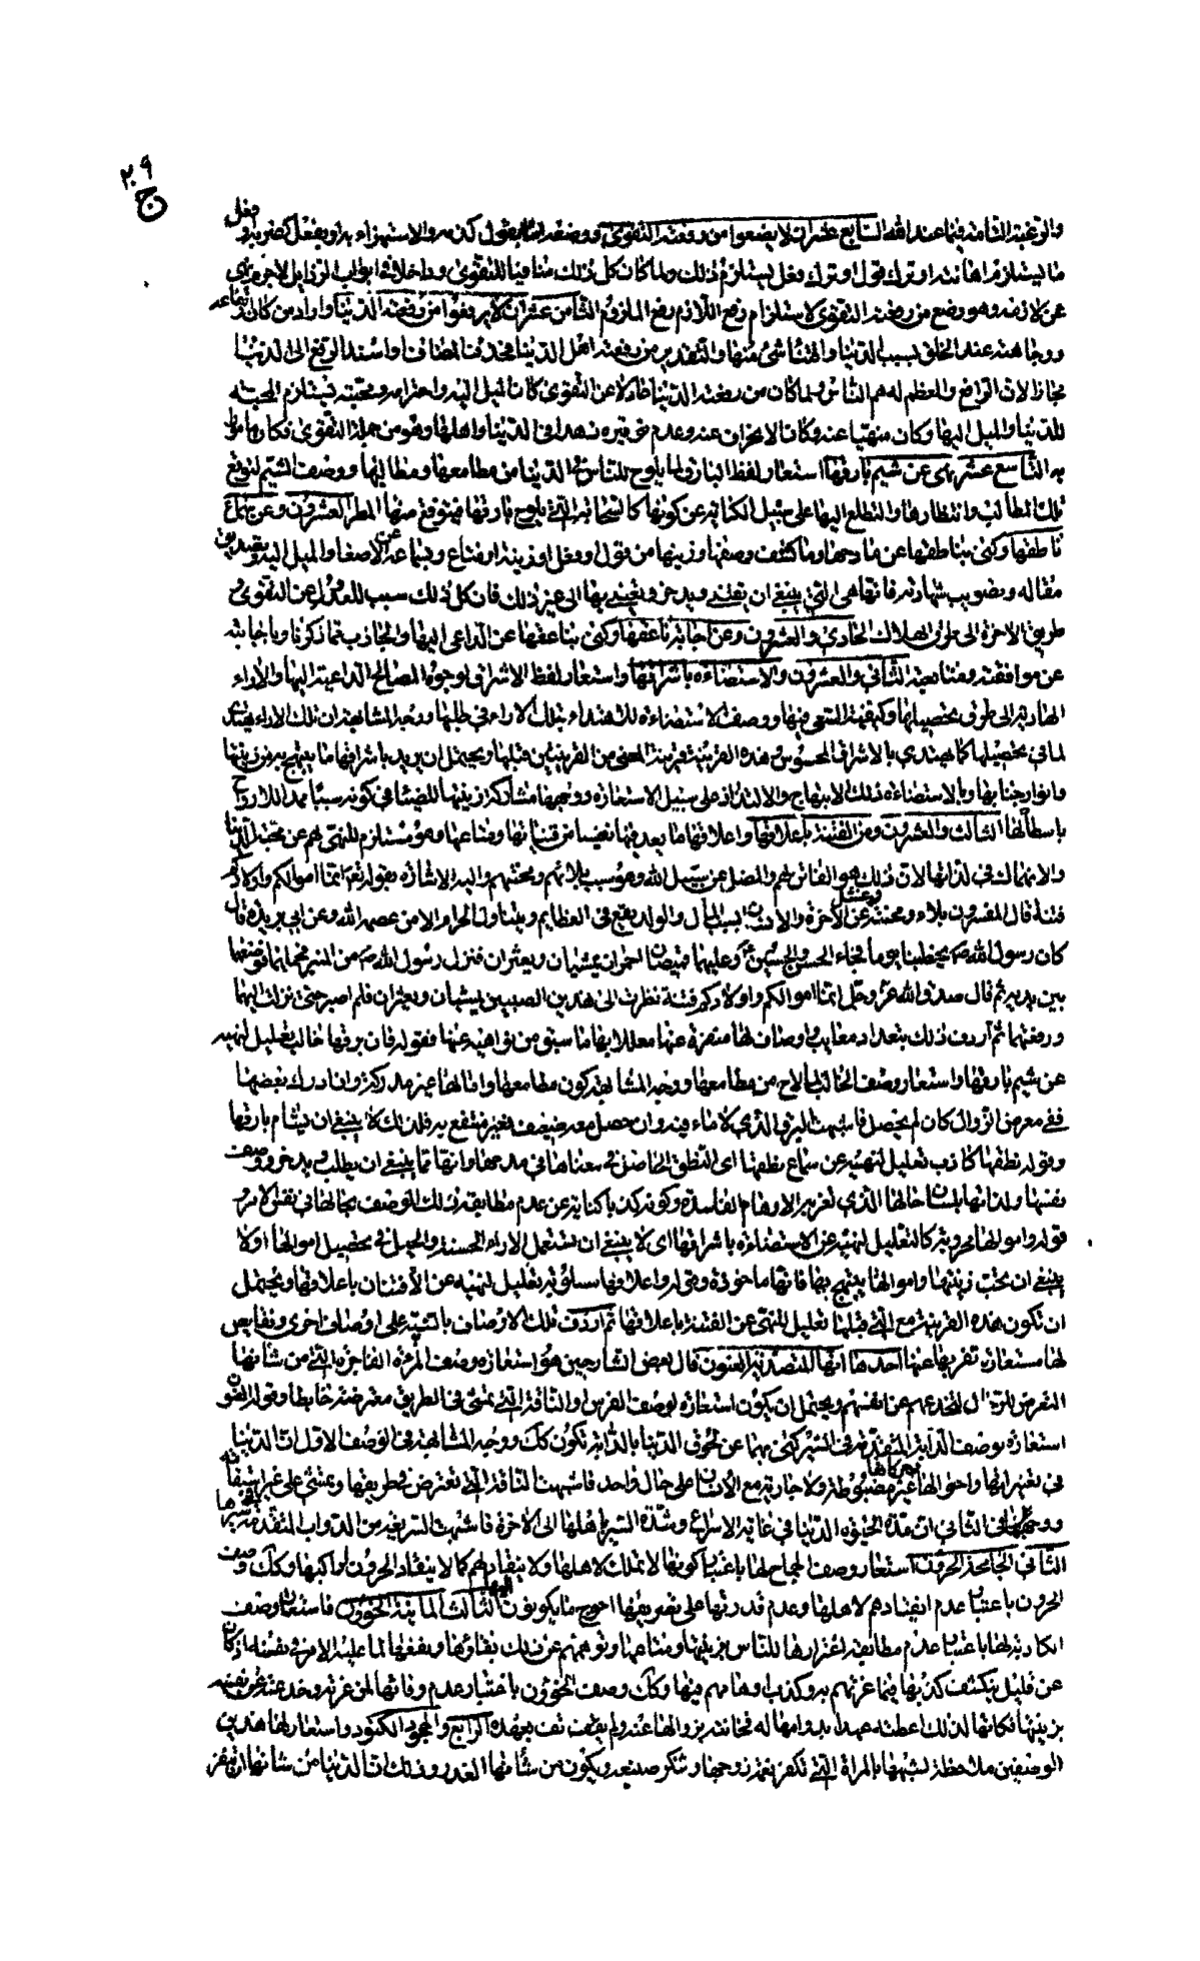 ٢٠٩
ج
والرغبة التامة فيما عند الله السابع عشر ان لا يضعوا من رفعته التقوى ووضعه اما بقول كذمه والاستهزاء به او بفعل كضربه او فعل
ما يستلزم اهانته او ترك قول او ترك فعل يستلزم ذلك ولما كان كل ذلك منافيا للتقوى وداخلا في ابواب الرذايل لا جرم نهى
عن لازمه وهو وضع من رفعته التقوى لاستلزام رفع اللازم رفع الملزوم الثامن عشر ان لا يرفعوا من رفعته الدنيا واراد من كان
ووجاهته عند الخلق بسبب الدنيا والتقدير من رفعته اهل الدنيا فحذف المضاف واسند الرفع الى الدنيا
مجازا لان الرافع والمعظم له هم الناس ولما كان من رفعته الدنيا عادلا عن التقوى كان الميل اليه واحترامه ومحبته يستلزم المحبة
للدنيا والميل اليها وكان منهيا عنه وكان الانحراف عنه وعدم توقيره زهدا في الدنيا واهلها وهو من جملة التقوى فكان مامورا
به التاسع عشر نهى عن شيم بارقها استعار لفظ البارق لما يلوح للناس في الدنيا من مطامعها ومطالبها ووصف الشيم لتوقع
تلك المطالب وانتظارها والتطلع اليها على سبيل الكناية عن كونها كالسحابة التي يلوح بارقها فيتوقع منها المطر العشرون وعن سماع
ناطقها وكنى بناطقها عن مادحها وما كشف وصفها وزينها من قول او فعل او زينة او متاع وبسماعه عن الاصغاء والميل اليه وتصديق
مقاله وتصويب شهادته فانها هي التي ينبغي ان يقتنى ويدخر ويعتد بها الى غير ذلك فان كل ذلك سبب للعدول عن التقوى و
طريق الاخرة الى طرق الهلاك الحادي والعشرون وعن اجابة ناعقها وكنى بناعقها عن الداعي اليها والجاذب مما ذكرنا وباجابته
عن موافقته ومتابعته الثاني والعشرون والاستضاءة باشراقها واستعار لفظ الاشراق لوجوه المصالح الداعية اليها والاراء
الهادية الى طرق تحصيلها وكيفية السعي فيها ووصف الاستضاءة للاهتداء بتلك الاراء في طلبها ووجه المشابهة ان تلك الاراء يهتدى
لما في تحصيلها كما يهتدى بالاشراق المحسوس وهذه القرينة قريبة المعنى من القرينتين قبلها ويحتمل ان يريد باشراقها ما يبتهج به من زينتها
وانوار جنابها وبالاستضاءة ذلك الابتهاج والالتذاذ على سبيل الاستعارة ووجهها مشاركة زينتها للضياء في كونه سببا ممدا للارواح
باسطا لها الثالث والعشرون ومن الفتنة باعلاقها واعلاقها ما يعد فيها نفيسا من قنياتها ومتاعها وهو مستلزم للنهي لهم عن محبة الدنيا
والانهماك في لذاتها لان ذلك هو الفاتن لهم والمضل عن سبيل الله وهو سبب بلائهم ومحنتهم واليه الاشارة بقوله تعالى انما اموالكم واولادكم
فتنة قال المفسرون بلاء ومحنة وشغل عن الاخرة والانسان بسبب المال والولد يقع في العظايم ويتناول الحرام الا من عصمه الله وعن ابي بريدة قال
كان رسول الله ص يخطبنا يوما فجاء الحسن والحسين ع وعليهما قميصان احمران يمشيان ويعثران فنزل رسول الله ص من المنبر فحملهما فوضعهما
بين يديه ثم قال صدق الله عز وجل انما اموالكم واولادكم فتنة نظرت الى هذين الصبيين يمشيان ويعثران فلم اصبر حتى نزلت اليهما
ورفعتهما ثم اردف ذلك بتعداد معايب واوصاف لها منفرة عنها معللا بها ما سبق من نواهيه عنها فقوله فان برقها خالب تعليل لنهيه
عن شيم بارقها واستعار وصف الخالب لما لاح من مطامعها ووجه المشابهة كون مطامعها وامالها غير مدركة وان ادرك بعضها
ففي معرض الزوال كان لم يحصل فاشبهت البرق الذي لا ماء فيه وان حصل معه ضعيف فغير منتفع به فلذلك لا ينبغي ان يشام بارقها
وقوله نطقها كاذب تعليل لنهيه عن سماع نطقها اى النطق الحاصل في معناها في مدحها وانها مما ينبغي ان يطلب ويدخر ووصف
نفسها ولذاتها بلسان حالها الذي تغر به الاوهام الفاسدة وكونه كذبا كناية عن عدم مطابقة ذلك الوصف بحالها في نفس الامر و
قوله واموالها محروبة كالتعليل لنهيه عن الاستضاءة باشراقها اى لا ينبغي ان يستعمل الاراء الحسنة والحيل في تحصيل اموالها او لا
ينبغي ان يحب زينتها واموالها ويبتهج بها فانها ماخوذة وقوله واعلاقها مسلوبة تعليل لنهيه عن الافتتان باعلاقها ويحتمل
ان تكون هذه القرينة مع التي قبلها تعليل للنهي عن الفتنة باعلاقها ثم اردف تلك الاوصاف بالتنبيه على اوصاف اخرى ونقايص
لها مستعارة تنفيرا عنها احدها انها المتصدية العنون قال بعض الشارحين هو استعارة وصف المرءة الفاجرة التي من شانها
التعرض للرجال لتخدعهم عن انفسهم ويحتمل ان يكون استعارة لوصف الفرس او الناقة التي تمشي في الطريق معترضة خابطا وقوله العنون
استعارة بوصف الدابة المتقدمة في السير كنى بهما عن لحوق الدنيا بالدابة تكون كك ووجه المشابهة في الوصف الاول ان الدنيا
في تغيراتها واحوالها وحركاتها غير مضبوطة ولا جارية مع الانسان على حال واحد فاشبهت الناقة التي تعترض في طريقها وتمشي على غير استقامة
ووجهها في الثاني ان مدة الحيوة الدنيا في غاية الاسراع وشدة السير باهلها الى الاخرة فاشبهت السريعة من الدواب المتقدمة في سيرها
الثاني الجامحة الحرون استعار وصف الجماح لها باعتبار كونها لا تملك لاهلها ولا ينقاد لهم كما لا ينقاد الحرون لراكبها وكك وصف
الحرون باعتبار عدم انقيادهم لاهلها وعدم قدرتها على تصريفها احوج ما يكونون اليها الثالث الماينة الخوون فاستعار وصف
الكاذبة لها باعتبار عدم مطابقة اغترارها للناس بزينتها ومتاعها وتوهمهم عن ذلك بقاؤها ونفعها لما عليه الامر في نفسه اذ كان
عن قليل ينكشف كذبها فيما غرتهم به وكذب اوهامهم فيها وكك وصف الخوون باعتبار عدم وفائها لمن غرته وخدعته عن نفسه
بزينتها فكانها لذلك اعطته عهدا بدوامها له فخانته بزوالها عنه ولم يف بعهده الرابع والجحود الكنود واستعار لها هذين
الوصفين ملاحظة لشبهها بالمراة التي تكفر نعمة زوجها وتنكر صنيعه ويكون من شانها الغدر وذلك ان الدنيا من شانها ان تنفر